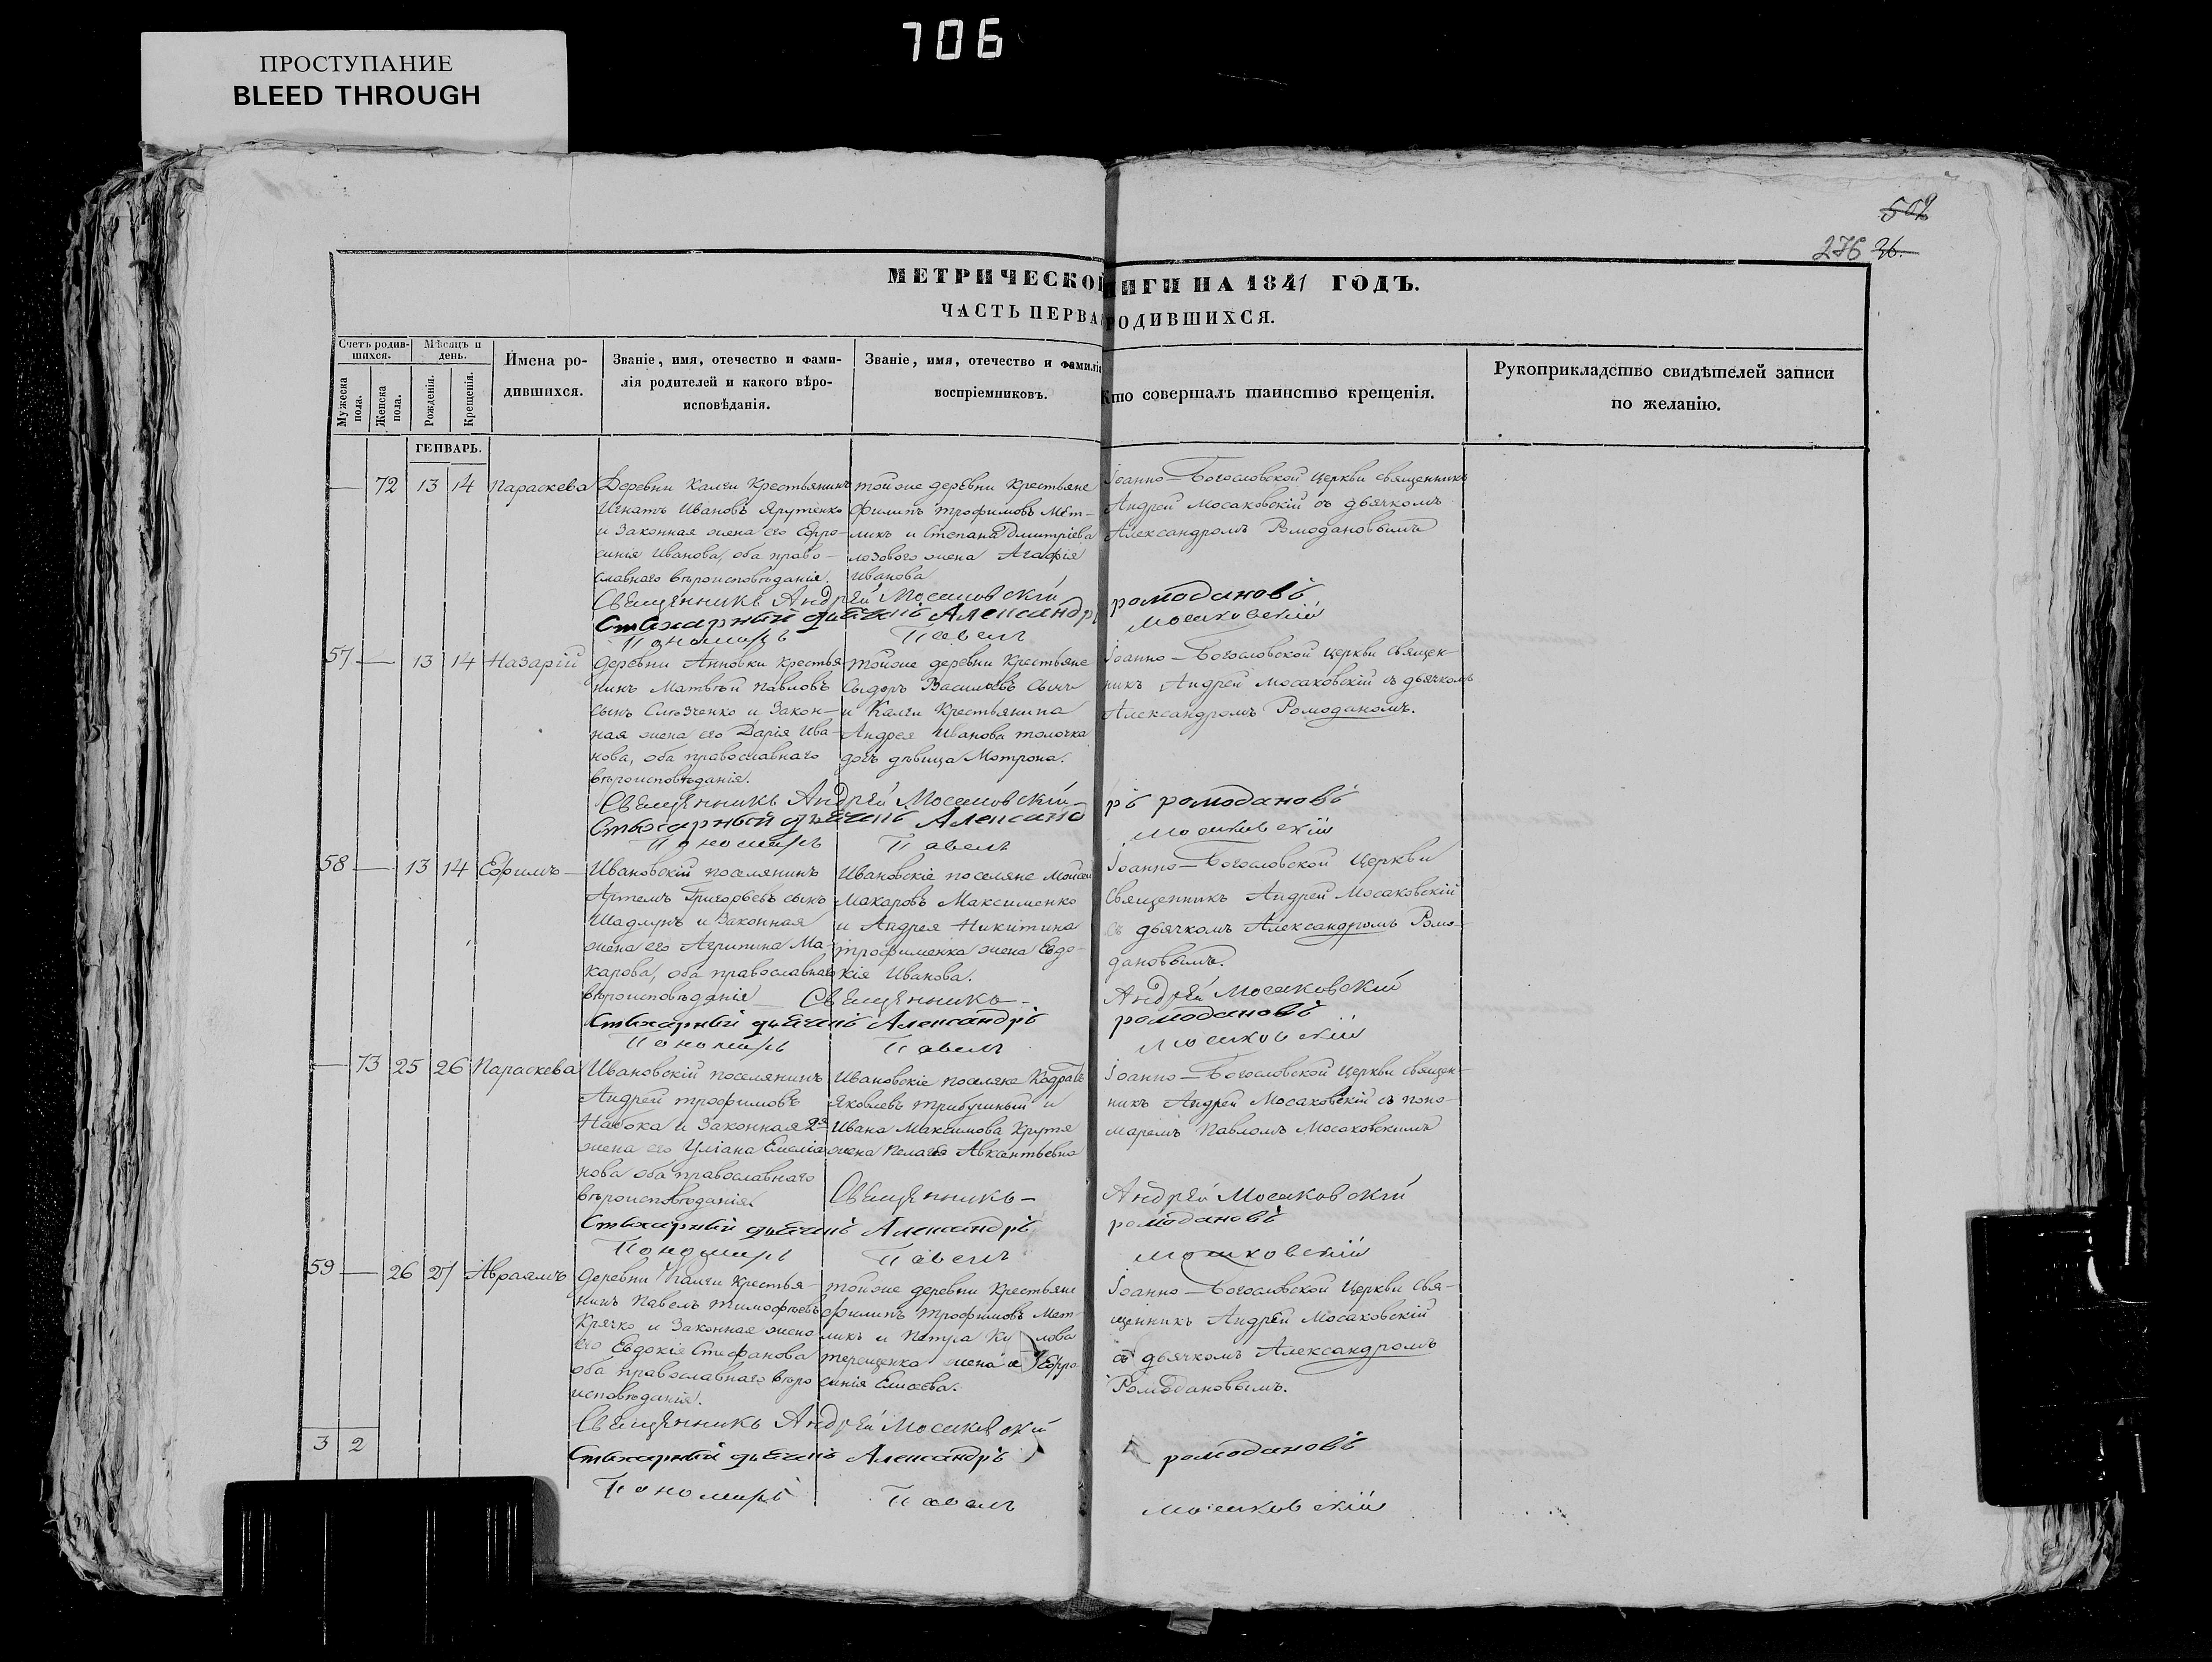 706
ПРОСТУПАНИЕ
BLEED THROUGH
502
276 26.
МЕТРИЧЕСКОЙ НИГИ НА 1841 ГОДЪ.
ЧАСТЬ ПЕРВА РОДИВШИХСЯ.
Счетъ родив-шихся.
Мѣсяцъ и день.
Мужеска пола.
Женска пола.
Рожденія.
Крещенія.
Имена ро-
дившихся.
Званіе, имя, отечество и фами-
лія родителей и какого вѣро-
исповѣданія.
Званіе, имя, отечество и фамилія
воспріемниковъ.
Кто совершалъ таинство крещенія.
Рукоприкладство свидѣтелей записи
по желанію.
ГЕНВАРЬ.
— 72 13 14 Параскева
Деревни Калги Крестьянинъ
Игнатъ Ивановъ Ярутенко
и Законная жена его Ефро-
синія Иванова, оба право-
славнаго вѣроисповѣданія.
тойже деревни Крестьяне
Филипъ Трофимовъ Мет-
ликъ и Степана Дмитріева
жена Агафія
Иванова
Іоанно-Богословской Церкви Священникъ
Андрей Мосаковскій съ дьячкомъ
Александромъ Ромодановымъ
Священникъ Андрей Мосаковскій
Стихарный дьячекъ Александръ ромодановъ
Пономарь Павелъ Мосаковскій
57 — 13 14 Назарій
Деревни Анновки Крестья-
нинъ Матвѣй Павловъ
сынъ и Закон-
ная жена его Дарія Ива-
нова, оба православнаго
вѣроисповѣданія.
тойже деревни Крестьяне
Сыдоръ Васильевъ
и Калги Крестьянина
Андрея Иванова толочка
дочъ дѣвица Мотрона.
Іоанно-Богословской Церкви Священ-
никъ Андрей Мосаковскій съ дьячкомъ
Александромъ Ромоданомъ.
Священникъ Андрей Мосаковскій
Стихарный дьячекъ Александ ръ ромодановъ
Пономарь Павелъ Мосаковскій
58 — 13 14 Ефимъ
Ивановскій поселянинъ
Артемъ Григорьевъ сынъ
Шадлунъ и Законная
жена его Агрипина Ма-
карова, оба православнаго
вѣроисповѣданія
Ивановскіе поселяне Мойсей
Макаровъ Максименко
и Андрея Никитина
трофименка жена Евдо-
кія Иванова.
Іоанно-Богословской Церкви
Священникъ Андрей Мосаковскій
съ дьячкомъ Александромъ Ромо-
дановымъ.
Священникъ Андрей Мосаковскій
Стихарный дьячекъ Александръ ромодановъ
Пономарь Павелъ Мосаковскій
— 73 25 26 Параскева
Ивановскій поселянинъ
Андрей трофимовъ
Набока и Законная 2я
жена его Уліана Емеліа
нова оба православнаго
вѣроисповѣданія.
Ивановскіе поселяне Кодратъ
Яковлевъ и
Ивана Максимова Крутя
жена Пелагея Авксентьевна
Іоанно-Богословской Церкви Священ-
никъ Андрей Мосаковскій съ поно-
маремъ Павломъ Мосаковскимъ
Священникъ Андрей Мосаковскій
Стихарный дьячекъ Александръ ромодановъ
Пономарь Павелъ Мосаковскій
59 — 26 27 Авраамъ
Деревни Калги Крестья-
нинъ Павелъ Тимофѣевъ
Крячко и Законная жена
его Евдокія Стефанова
оба православнаго вѣро
исповѣданія.
тойже деревни Крестьяне
Филипъ Трофимовъ Мет-
ликъ и Петра
терещенка жена Ефро
синія Елисева.
Іоанно-Богословской Церкви Свя-
щенникъ Андрей Мосаковскій
съ дьячкомъ Александромъ
Ромодановымъ.
Священникъ Андрей Мосаковскій
3 2
Стихарный дьячекъ Александръ ромодановъ
Пономарь Павелъ Мосаковскій